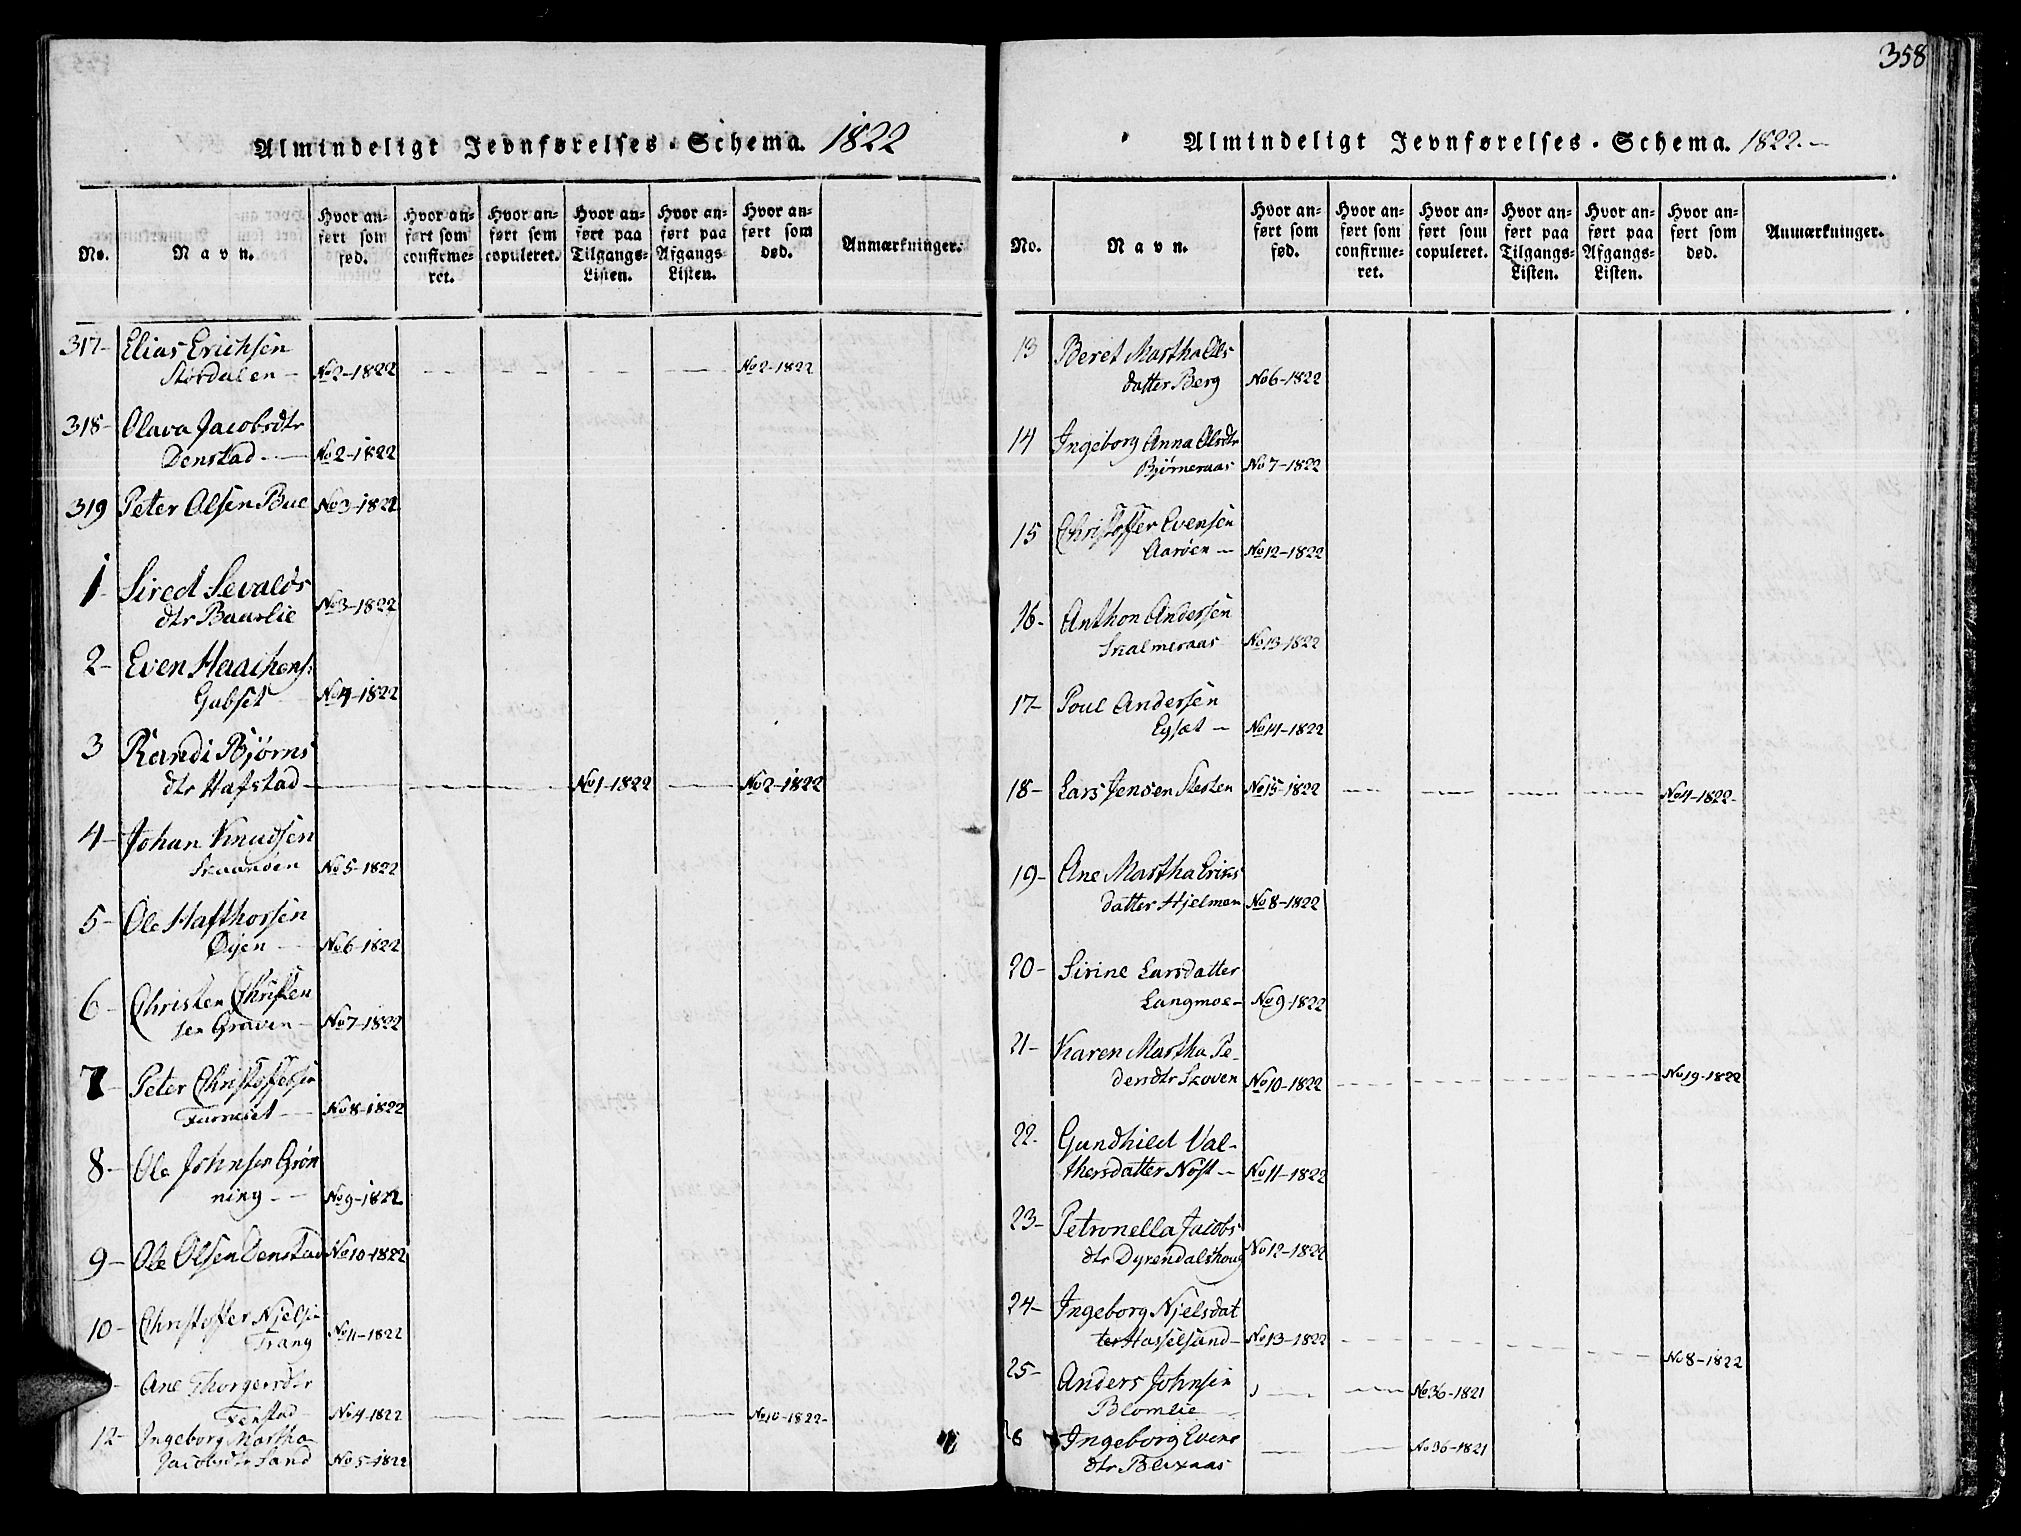 Almindeligt Jevnførelses-Schema. 1822
No.
Navn.
Hvor anført som fød.
Hvor anført som confirmeret.
Hvor anført som copuleret.
Hvor anført paa Tilgangs-Listen.
Hvor anført paa Afgangs-Listen.
Hvor anført som død.
Anmærkninger.
317- Elias Erichsen
Stordalen - No2-1822 No2-1822
318- Olava Jacobsdtr
Denstad - No2-1822
319 Peter Olsen Bue No3-1822
1- Sired Sevalds
dtr Baarlie No3-1822
2- Even Haachens:
Gabset No4-1822
3 Randi Bjørns
dtr Hafstad No1-1822 No2-1822
4- Johan Knudsen
Skaarøen No5-1822
5- Ole Hafthorsen
Øyen No6-1822
6- Christen Christen
sen Graven No7-1822
7- Peter Christoffersen
Farneset No8-1822
8- Ole Johnsen Grøn
ning No9-1822
9- Ole Olsen Denstad No10-1822
10- Christoffer Njelsen
Trang No11-1822
Ane Thorgersdtr
Fenstad No4-1822 No10-1822-
12- Ingeborg Martha
Jacobsdtr Sand No5-1822
358
Almindeligt Jevnførelses-Schema. 1822.-
No.
Navn.
Hvor anført som fød.
Hvor anført som confirmeret.
Hvor anført som copuleret.
Hvor anført paa Tilgangs-Listen.
Hvor anført paa Afgangs-Listen.
Hvor anført som død.
Anmærkninger.
13 Beret Martha Ols
datter Berg No6-1822
14 Ingeborg Anna Olsdtr
Bjørneraas No7-1822
15 Christoffer Evensen
Aarøen - No12-1822
16- Anthon Andersen
Skalmeraas No13-1822
17- Poul Andersen
Egset - No14-1822
18- Lars Jensen Stesten No15-1822 No4-1822-
19- Ane Martha Eriks
datter Hjelmen No8-1822
20- Sirine Larsdatter
Langmoe- No9-1822
21- Karen Martha Pe-
dersdtr Skoven No10-1822 No19-1822
22- Gundhild Val-
thersdatter Nøst - No11-1822
23- Petronella Jacobs
dtr Dyrendalshoug No12-1822
24- Ingeborg Njelsdat
ter Hasselsand- No13-1822 No8-1822
25- Anders Johnsen
Blomlie No36-1821
26 Ingeborg Evens
dtr Blixaas No36-1821